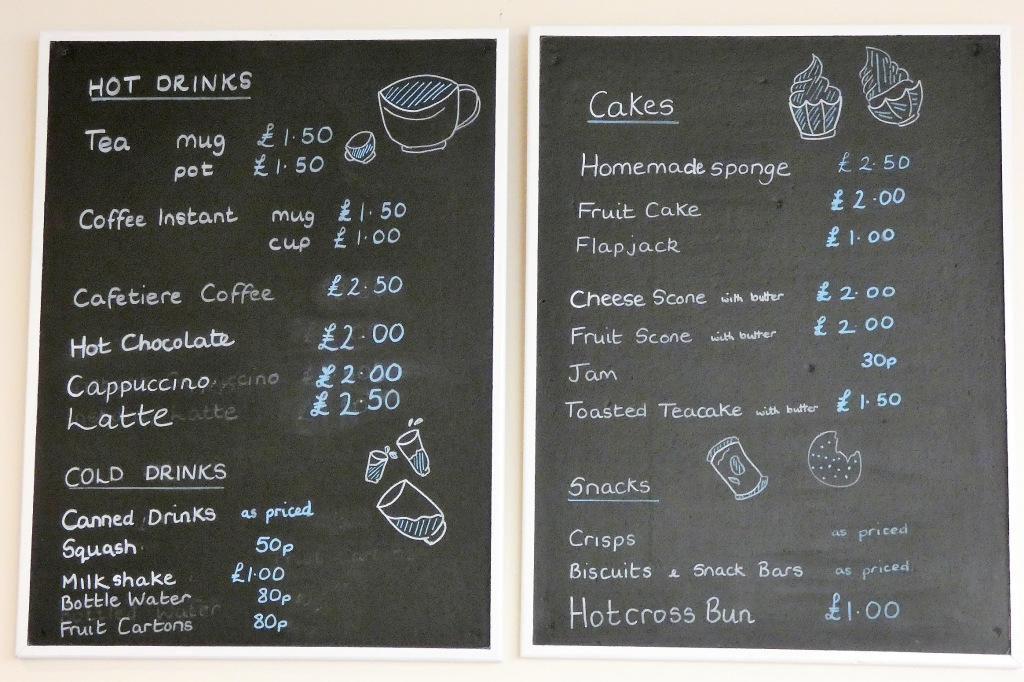 HOT DRINKS
Tea mug £1.50
pot £1.50
Coffee Instant mug £1.50
cup £1.00
Cafetiere Coffee £2.50
Hot Chocolate £2.00
Cappuccino £2.00
Latte £2.50
COLD DRINKS
Canned Drinks as priced
Squash 50p
Milkshake £1.00
Bottle Water 80p
Fruit Cartons 80p
Cakes
Homemade sponge £2.50
Fruit Cake £2.00
Flapjack £1.00
Cheese Scone with butter £2.00
Fruit Scone with butter £2.00
Jam 30p
Toasted Teacake with butter £1.50
Snacks
Crisps as priced
Biscuits & Snack Bars as priced
Hotcross Bun £1.00